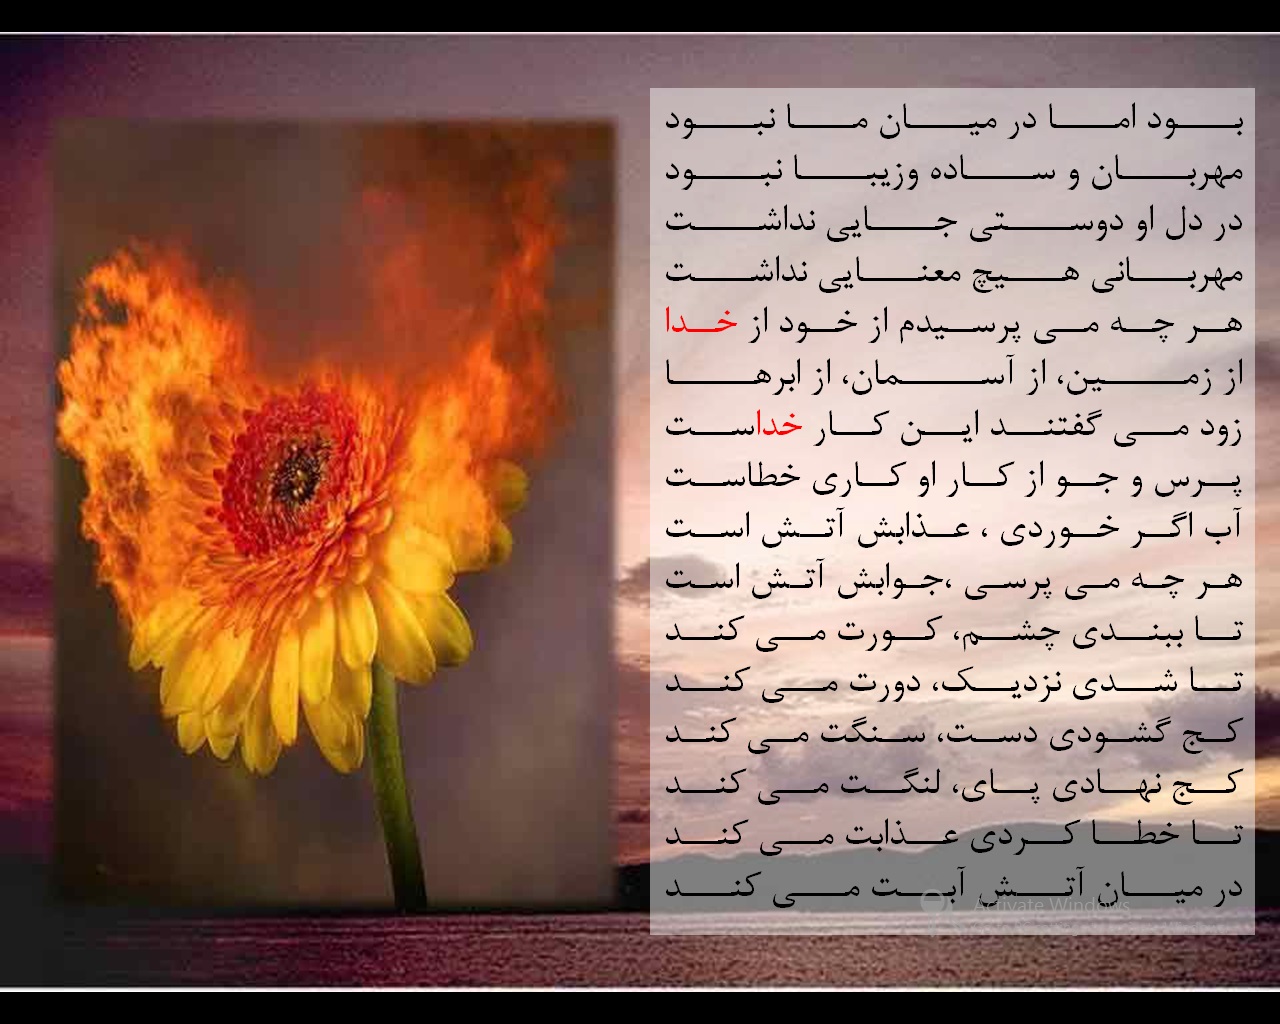 بود اما در میان ما نبود
مهربان و ساده وزیبا نبود
در دل او دوستی جایی نداشت
مهربانی هیچ معنایی نداشت
هر چه می پرسیدم از خود از خدا
از زمین، از آسمان، از ابرها
زود می گفتند این کار خداست
پرس و جو از کار او کاری خطاست
آب اگر خوردی ، عذابش آتش است
هر چه می پرسی ،جوابش آتش است
تا ببندی چشم، کورت می کند
تا شدی نزدیک، دورت می کند
کج گشودی دست، سنگت می کند
کج نهادی پای، لنگت می کند
تا خطا کردی عذابت می کند
در میان آتش آبت می کند
Activate Windows